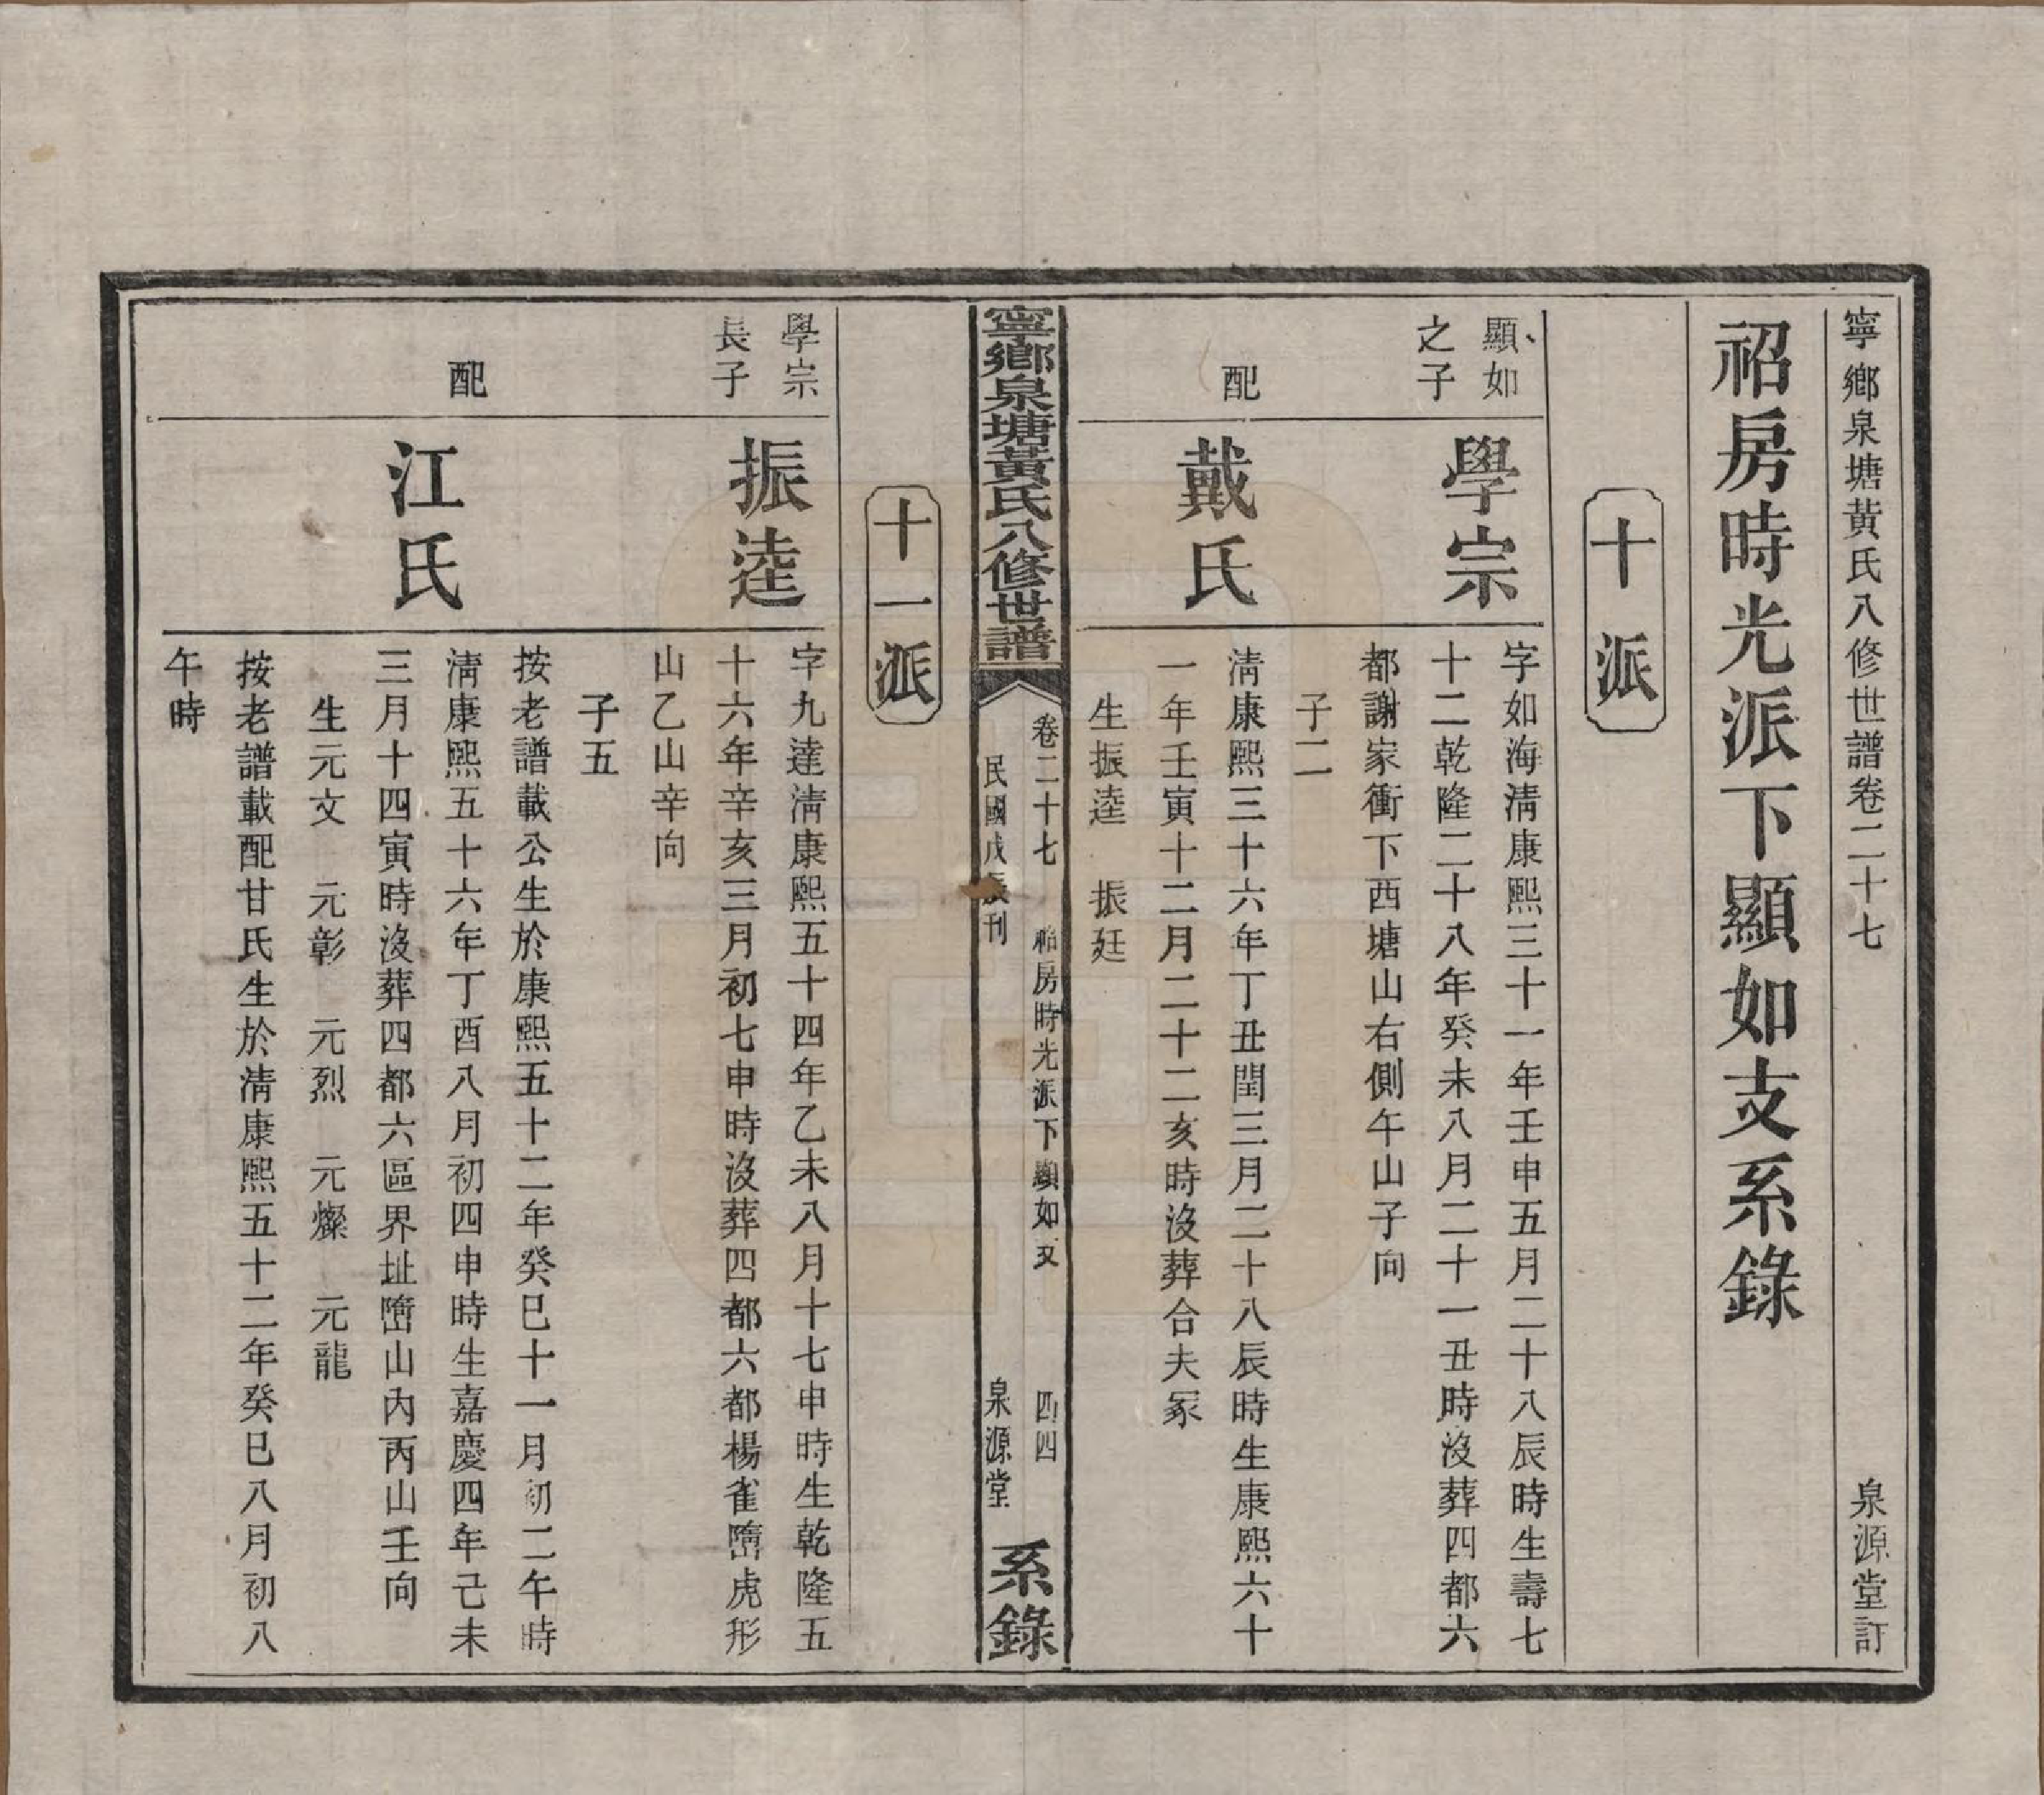 寧鄉泉塘黃氏八修世譜卷二十七　泉源堂訂
祒房時光派下顯如支系錄
十派
顯如
之子
學宗
字如海淸康熙三十一年壬申五月二十八辰時生壽七
十二乾隆二十八年癸未八月二十一丑時沒葬四都六
都謝家衝下西塘山右側午山子向
子二
配
戴氏
淸康熙三十六年丁丑閏三月二十八辰時生康熙六十
一年壬寅十二月二十二亥時沒葬合夫冢
生振逵　振廷
寧鄉泉塘黃氏八修世譜
卷二十七　祒房時光派下顯如支　四四
民國戊辰刊　泉源堂
系錄
十一派
學宗
長子
振逵
字九達淸康熙五十四年乙未八月十七申時生乾隆五
十六年辛亥三月初七申時沒葬四都六都楊雀㙐虎形
山乙山辛向
子五
按老譜載公生於康熙五十二年癸巳十一月初二午時
配
江氏
淸康熙五十六年丁酉八月初四申時生嘉慶四年己未
三月十四寅時沒葬四都六區界址㙐山內丙山壬向
生元文　元彰　元烈　元燦　元龍
按老譜載配甘氏生於淸康熙五十二年癸巳八月初八
午時